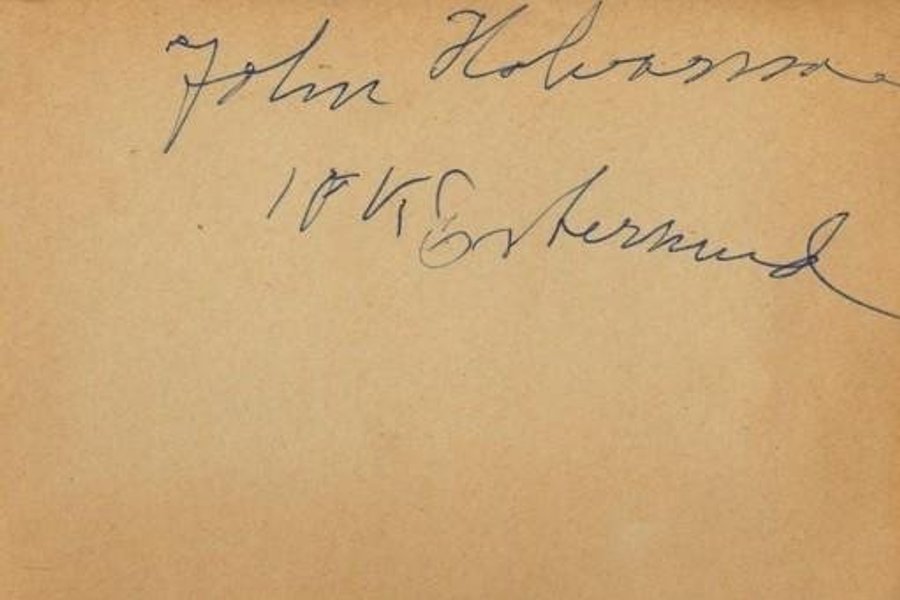 John Halvarsson
IFK Östersund